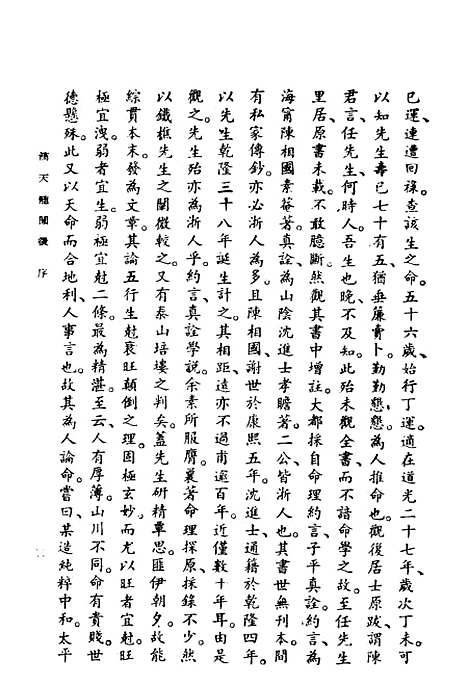 巳運、連遭回祿。查該生之命。五十六歲、始行丁運。適在道光二十七年、歲次丁未。可
以知先生壽已七十有五、猶垂簾賣卜。勤勤懇懇、為人推命也。觀後居士原跋、謂陳
君言、任先生、何時人。吾生也晚、不及知。此殆未觀全書、而不諳命學之故。至任先生
里居、原書未載、不敢臆斷。然觀其書中增註、大都採自命理約言、子平真詮。約言、為
海甯陳相國素菴著。真詮、為山陰沈進士孝瞻著。二公皆浙人也。其書世無刊本。間
有私家傳鈔、亦必浙人為多。且陳相國、謝世於康熙五年。沈進士、通籍於乾隆四年。
以先生乾隆三十八年誕生計之。其相距、遠亦不過甫逾百年。近僅數十年耳。由是
觀之。先生殆亦為浙人乎。約言、真詮學說。余素所服膺。曩著命理探原、採錄不少。然
以鐵樵先生之闡微較之。又有泰山培塿之判矣。蓋先生研精覃思。匪伊朝夕。故能
綜貫本末。發為文章。其論五行生尅、衰旺顛倒之理。固極玄妙。而尤以旺者宜尅。旺
極宜洩。弱者宜生。弱極宜尅二條。最為精湛。至云、人有厚薄。山川不同。命有貴賤。世
德懸殊。此又以天命而合地利、人事言也。故其為人論命。嘗曰、某造純粹中和。太平
滴天髓闡微 序